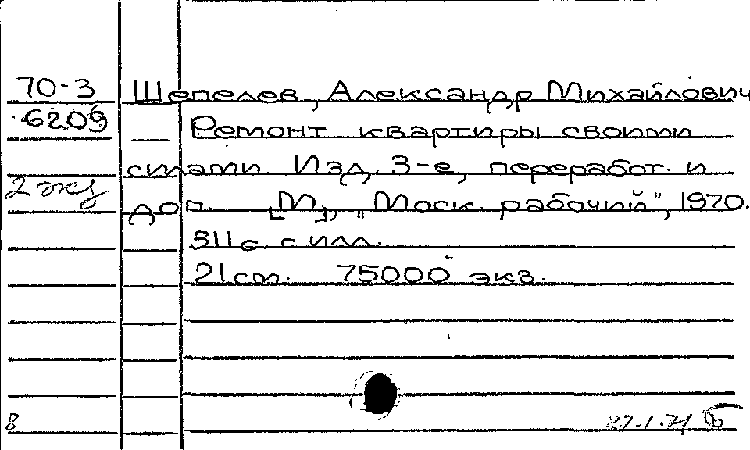 70-3 Шепелев, Александр Михайлович
6209 Ремонт квартиры своими
силами. Изд. 3-е, переработ. и
2 экз доп. [М], "Моск. рабочий", 1970.
311 с. с илл.
21 см. 75000 экз.
В 27.1.71